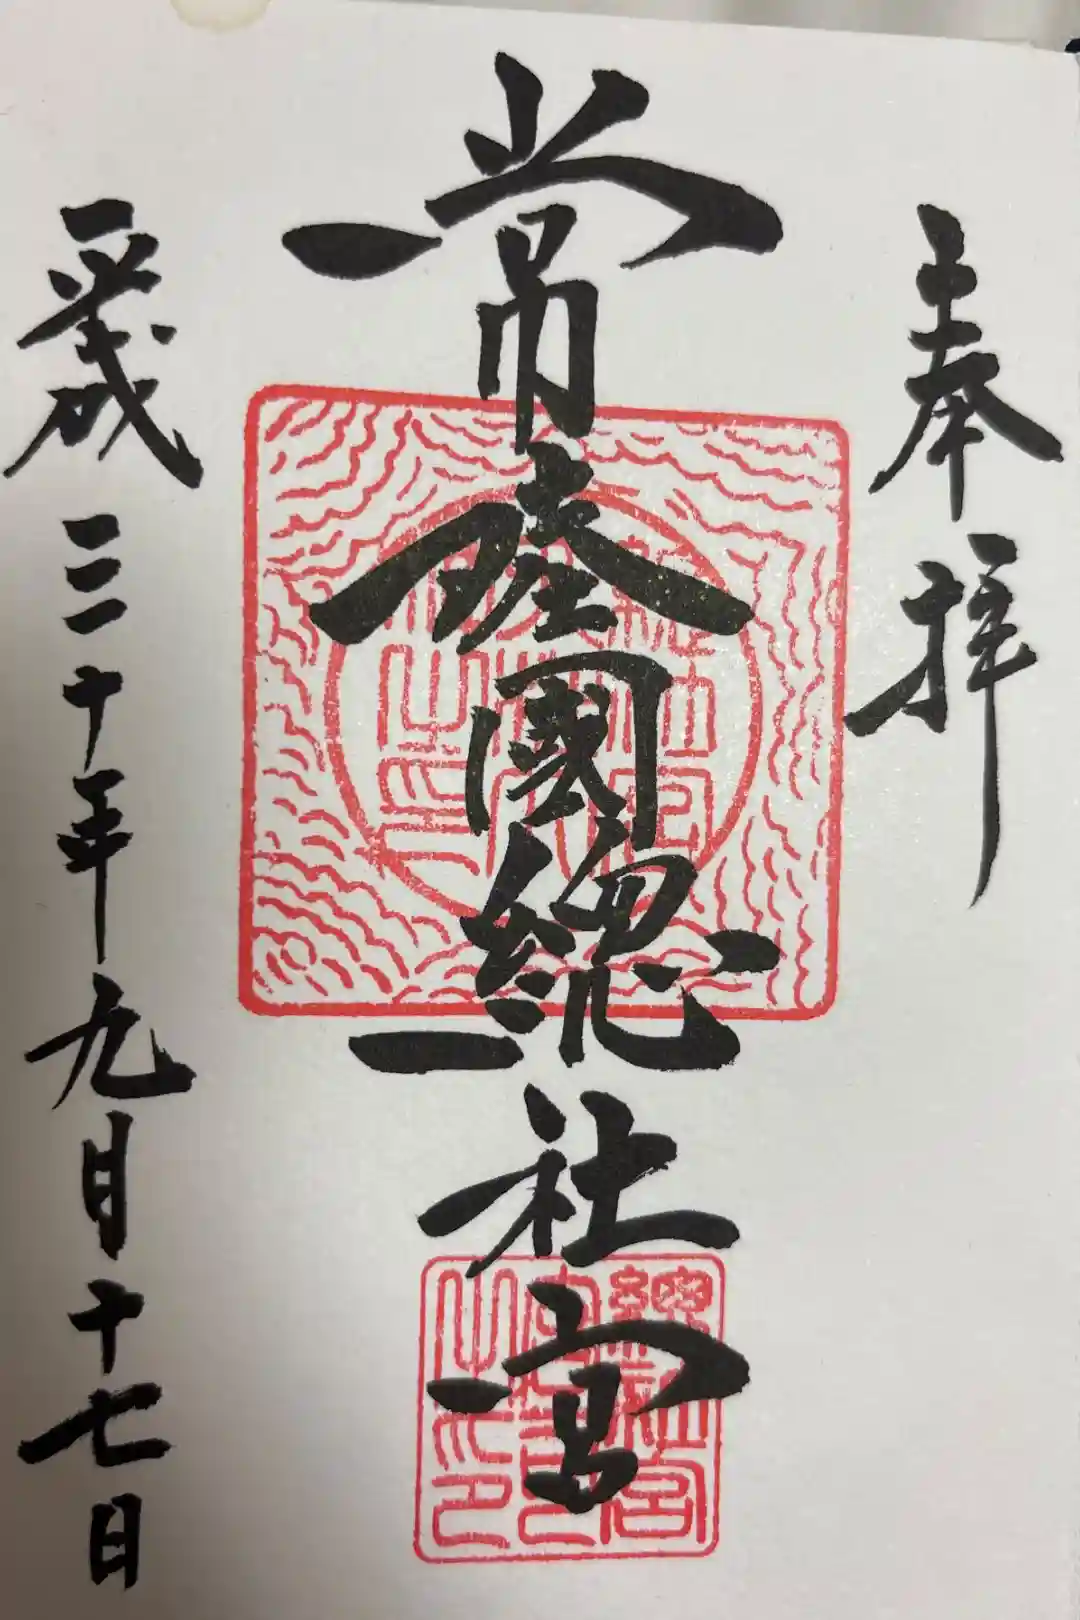 奉拝
常陸國總社宮
平成三十年九月十七日